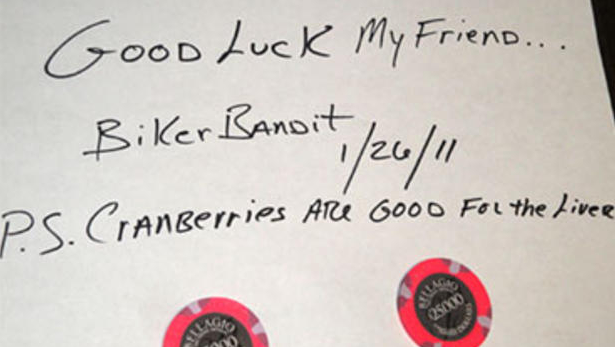 GOOD LUCK My FRiEND...
BiKER BANDit
1/26/11
P.S. CRANBERRiES ARE GOOD FOR the Liver
BELLAGIO
25000
BELLAGIO